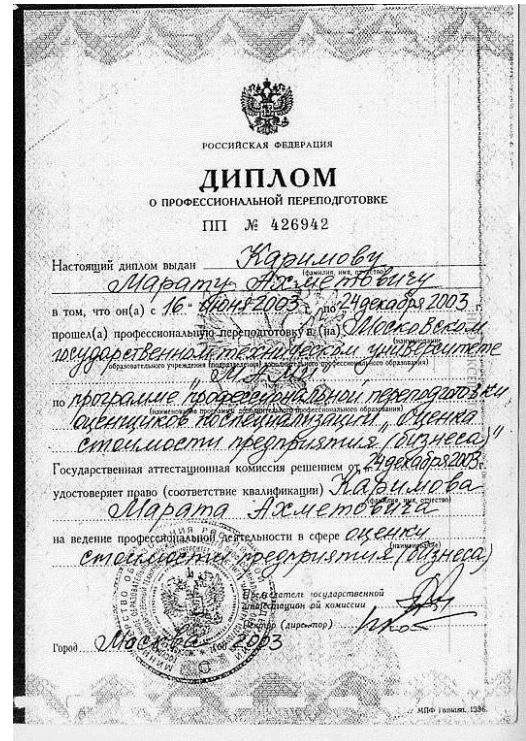 РОССИЙСКАЯ ФЕДЕРАЦИЯ
ДИПЛОМ
О ПРОФЕССИОНАЛЬНОЙ ПЕРЕПОДГОТОВКЕ
ПП № 426942
Настоящий диплом выдан Каримову
(фамилия, имя, отчество)
Марату Ахметовичу
в том, что он(а) с 16 июня 2003 г. по 24 декабря 2003 г.
прошел(а) профессиональную переподготовку в (на) Московском
(наименование
государственном техническом университете
образовательного учреждения (подразделения) дополнительного профессионального образования)
"МАМИ"
по программе профессиональной переподготовки
(наименование программы дополнительного профессионального образования)
оценщиков по специализации "Оценка
стоимости предприятия (бизнеса)"
Государственная аттестационная комиссия решением от 24 декабря 2003 г.
удостоверяет право (соответствие квалификации) Каримова
(фамилия, имя, отчество)
Марата Ахметовича
на ведение профессиональной деятельности в сфере оценки
(наименование)
стоимости предприятия (бизнеса)
Председатель государственной
аттестационной комиссии
Ректор (директор)
Город Москва 2003
МПФ Гознака. 1996.